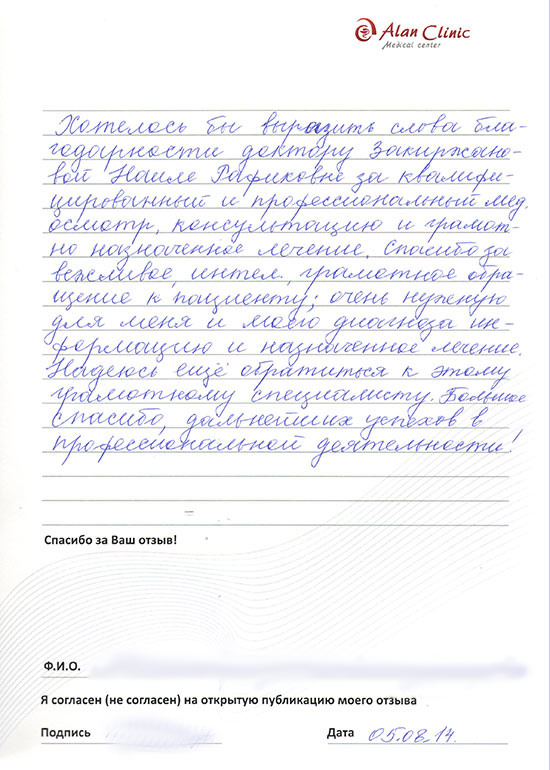 Alan Clinic
Medical center
Хотелось бы выразить слова бла-
годарности доктору Закиржано-
вой Наиле Рафиковне за квалифи-
цированный и профессиональный мед.
осмотр, консультацию и грамот-
но назначенное лечение. Спасибо за
вежливое, интел., грамотное обра-
щение к пациенту; очень нужную
для меня и моего диагноза ин-
формацию и назначенное лечение.
Надеюсь ещё обратиться к этому
грамотному специалисту. Большое
спасибо, дальнейших успехов в
профессиональной деятельности!
Спасибо за Ваш отзыв!
Ф.И.О.
Я согласен (не согласен) на открытую публикацию моего отзыва
Подпись Дата 05.08.14.